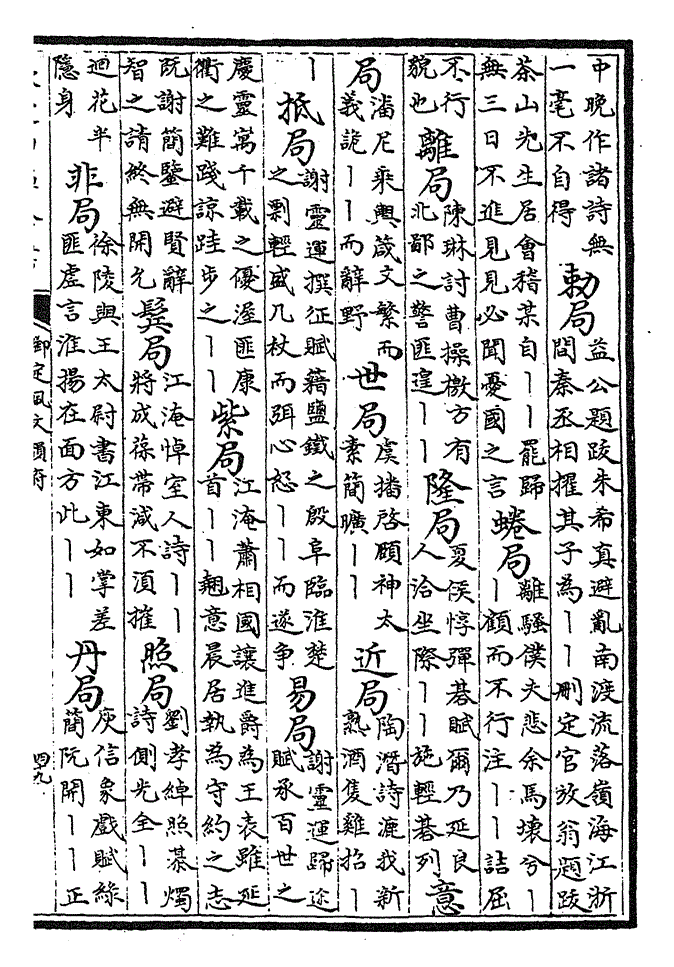 中晚作諸詩無一毫不自得 敕局 益公題跋朱希真避亂南渡流落嶺海江浙間秦丞相擢其子為||刪定官放翁題跋
茶山先生居會稽某自||罷歸無三日不進見見必聞憂國之言 蜷局 離騷僕夫悲余馬壞兮||顧而不行注||詰屈
不行貌也 離局 陳琳討曹操檄方有北鄙之警匪遑|| 隆局 夏侯惇彈棊賦爾乃延良人洽坐際||施輕棊列 意
局 潘尼乘輿葴文繁而義詭||而辭野 世局 虞播啓願神太素簡曠|| 近局 陶潛詩漉我新熟酒隻雞招|
| 抵局 謝靈運撰征賦藉鹽鐵之殷阜臨淮楚之剽輕盛几杖而弭心怒||而遂争 易局 謝靈運歸途賦承百世之
慶靈寓千載之優渥匪康衢之難踐諒跬步之|| 紫局 江淹蕭相國讓進爵為王表雖延首||翹意晨居執為守約之志
阮謝簡鑒避賢辭智之請終無開允 鬓局 江淹悼室人詩||將成葆帶減不湏摧 照局 劉孝綽照棊燭詩側光全||
迴花半隱身 非局 徐陵與王太尉書江東如掌差匪虛言淮揚在面方此|| 丹局 庾信象戲賦綠簡阮開||正
御定佩文韻府
四九